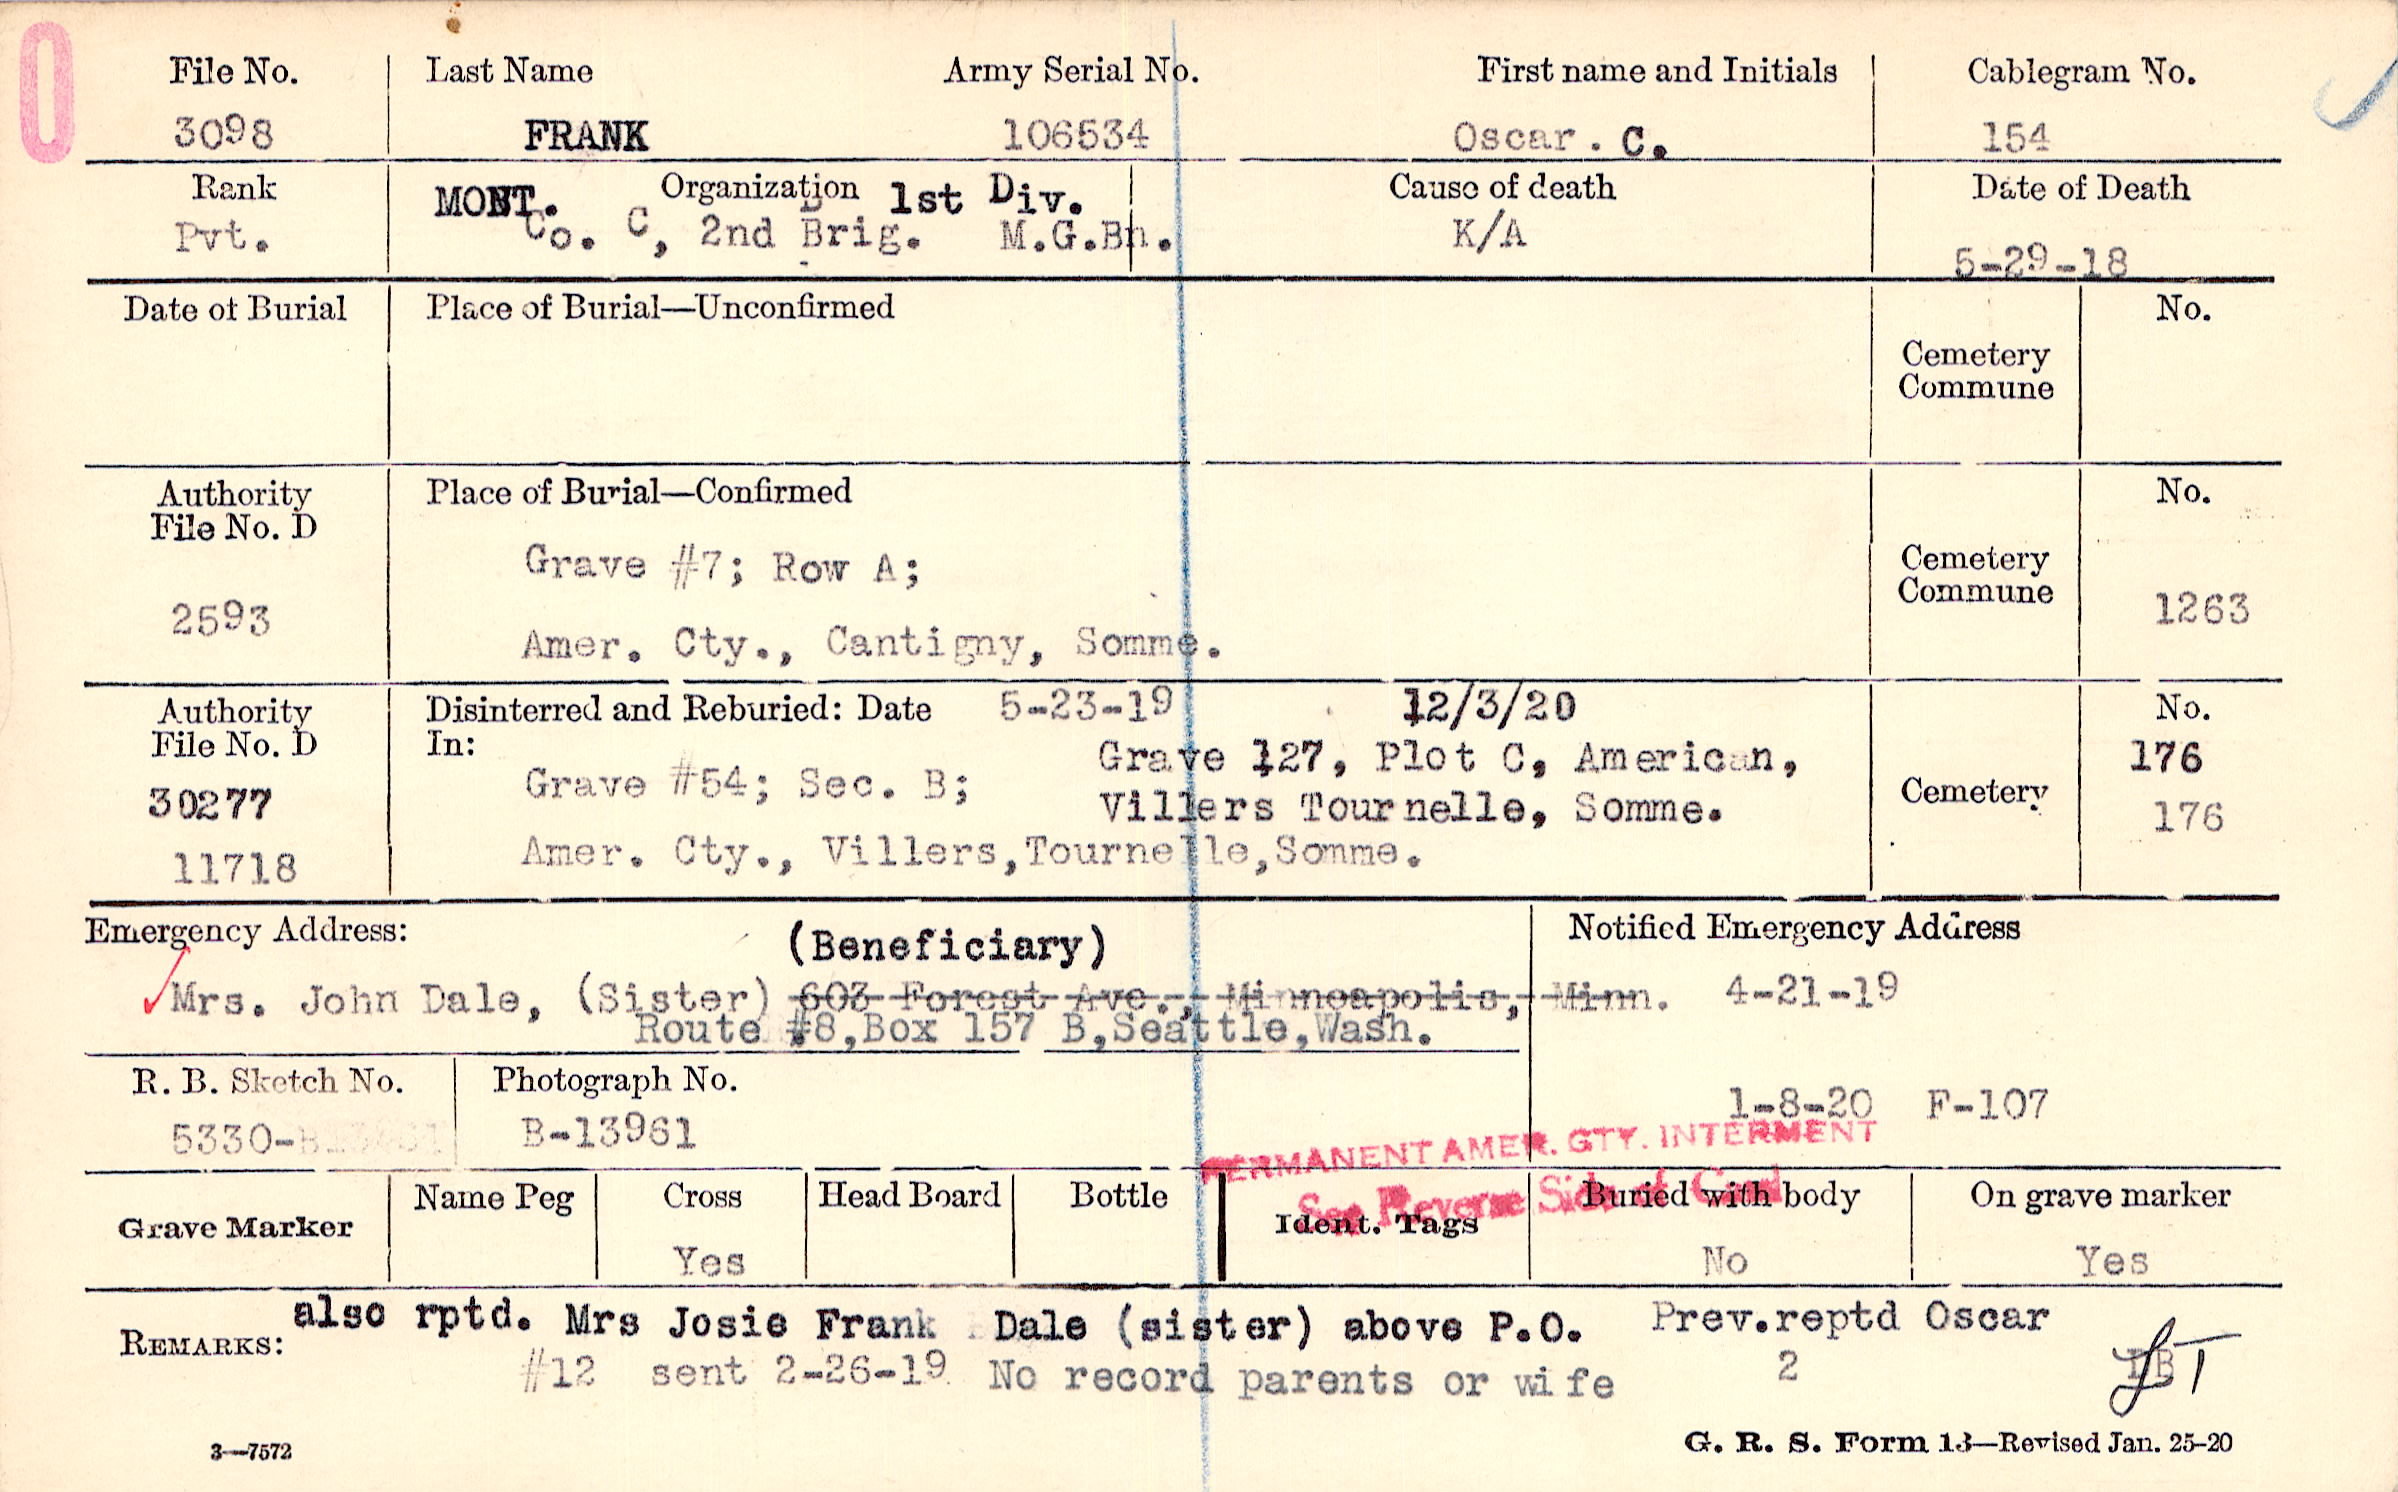 0
File No. Last Name Army Serial No. First name and Initials Cablegram No.
3098 FRANK 106534 Oscar . C. 154
Rank Organization Cause of death Date of Death
MONT. 1st Div.
Pvt. Co. C, 2nd Brig. M.G.Bn. K/A 5-29-18
Date of Burial Place of Burial—Unconfirmed No.
Cemetery
Commune
Authority Place of Burial—Confirmed No.
File No. D
Grave #7; Row A; Cemetery
Commune
2593 1263
Amer. Cty., Cantigny, Somme.
Authority Disinterred and Reburied: Date 5-23-19 12/3/20 No.
File No. D In:
Grave 127, Plot C, American, 176
30277 Grave #54; Sec. B; Villers Tournelle, Somme. Cemetery 176
11718 Amer. Cty., Villers,Tournelle,Somme.
Emergency Address: (Beneficiary) Notified Emergency Address
Mrs. John Dale, (Sister) 603 Forest Ave., Minneapolis, Minn. 4-21-19
Route #8,Box 157 B,Seattle,Wash.
R. B. Sketch No. Photograph No.
1-8-20 F-107
5330- B-13961
PERMANENT AMER. CTY. INTERMENT
See Reverse Side of Card
Grave Marker Name Peg Cross Head Board Bottle Ident. Tags Buried with body On grave marker
Yes No Yes
also rptd. Mrs Josie Frank Dale (sister) above P.O. Prev.reptd Oscar
REMARKS: #12 sent 2-26-19 No record parents or wife 2
3—7572 G. R. S. Form 13—Revised Jan. 25-20